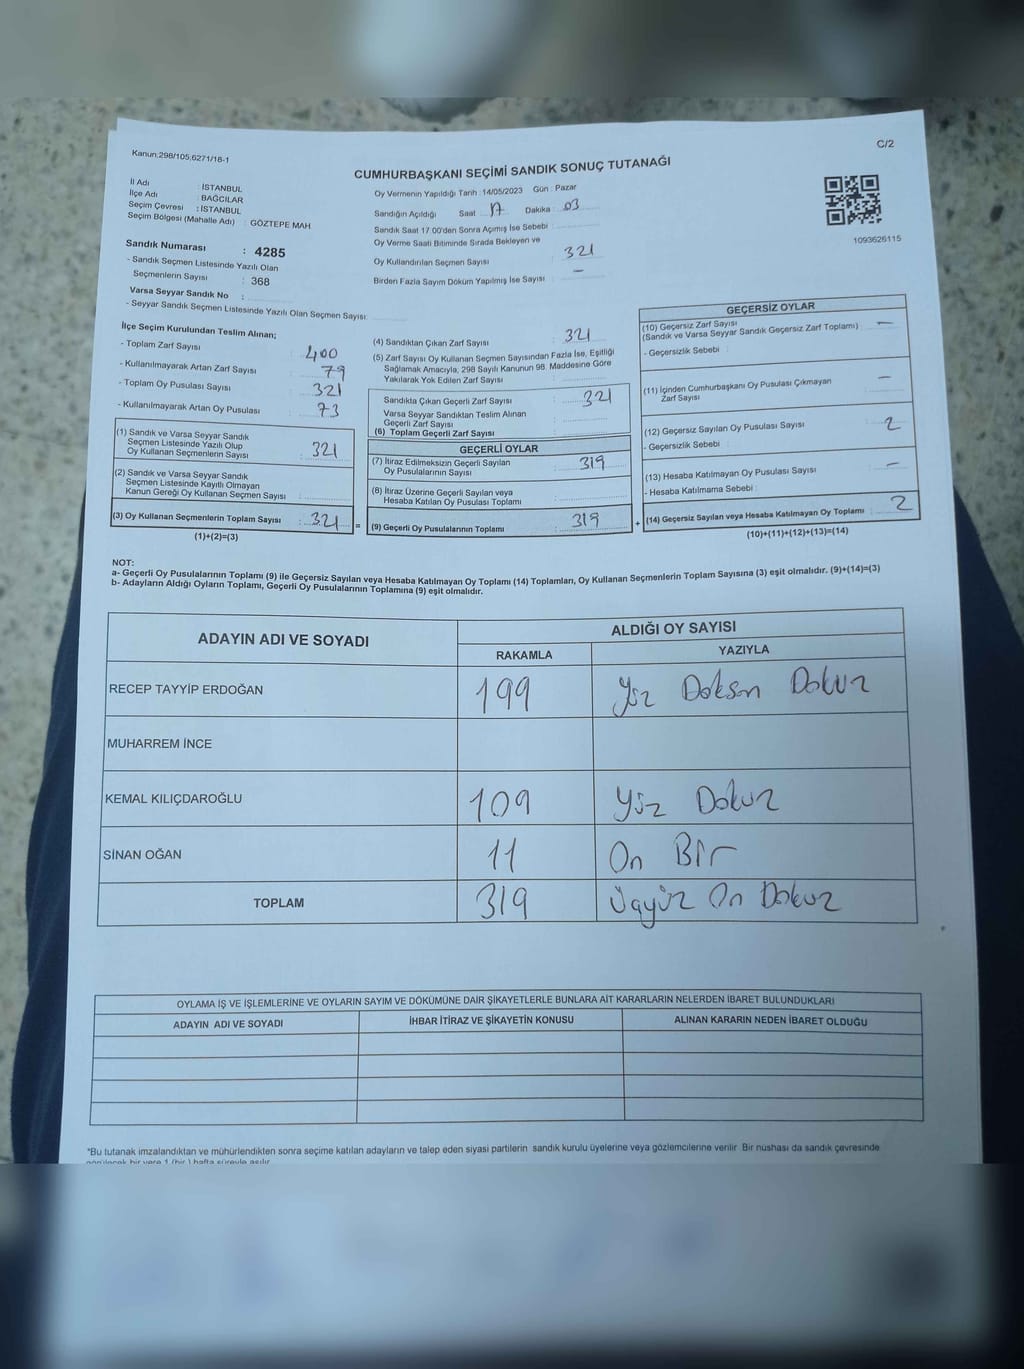 C/2
Kanun:298/105,6271/18-1
CUMHURBAŞKANI SEÇİMİ SANDIK SONUÇ TUTANAĞI
İl Adı : İSTANBUL
İlçe Adı : BAĞCILAR
Seçim Çevresi : İSTANBUL
Seçim Bölgesi (Mahalle Adı) : GÖZTEPE MAH
Sandık Numarası : 4285
- Sandık Seçmen Listesinde Yazılı Olan
Seçmenlerin Sayısı : 368
Varsa Seyyar Sandık No :
- Seyyar Sandık Seçmen Listesinde Yazılı Olan Seçmen Sayısı:
Oy Vermenin Yapıldığı Tarih : 14/05/2023 Gün : Pazar
Sandığın Açıldığı Saat 17 Dakika : 03
Sandık Saat 17.00'den Sonra Açılmış İse Sebebi :
Oy Verme Saati Bitiminde Sırada Bekleyen ve
Oy Kullandırılan Seçmen Sayısı : 321
Birden Fazla Sayım Döküm Yapılmış İse Sayısı : –
1093626115
İlçe Seçim Kurulundan Teslim Alınan;
- Toplam Zarf Sayısı : 400
- Kullanılmayarak Artan Zarf Sayısı : 79
- Toplam Oy Pusulası Sayısı : 321
- Kullanılmayarak Artan Oy Pusulası : 73
(1) Sandık ve Varsa Seyyar Sandık
Seçmen Listesinde Yazılı Olup
Oy Kullanan Seçmenlerin Sayısı : 321
(2) Sandık ve Varsa Seyyar Sandık
Seçmen Listesinde Kayıtlı Olmayan
Kanun Gereği Oy Kullanan Seçmen Sayısı :
(3) Oy Kullanan Seçmenlerin Toplam Sayısı : 321 =
(1)+(2)=(3)
(4) Sandıktan Çıkan Zarf Sayısı : 321
(5) Zarf Sayısı Oy Kullanan Seçmen Sayısından Fazla İse, Eşitliği
Sağlamak Amacıyla, 298 Sayılı Kanunun 98. Maddesine Göre
Yakılarak Yok Edilen Zarf Sayısı :
Sandıkta Çıkan Geçerli Zarf Sayısı : 321
Varsa Seyyar Sandıktan Teslim Alınan
Geçerli Zarf Sayısı :
(6) Toplam Geçerli Zarf Sayısı :
GEÇERLİ OYLAR
(7) İtiraz Edilmeksizin Geçerli Sayılan
Oy Pusulalarının Sayısı : 319
(8) İtiraz Üzerine Geçerli Sayılan veya
Hesaba Katılan Oy Pusulası Toplamı :
(9) Geçerli Oy Pusulalarının Toplamı : 319 +
GEÇERSİZ OYLAR
(10) Geçersiz Zarf Sayısı : –
(Sandık ve Varsa Seyyar Sandık Geçersiz Zarf Toplamı)
- Geçersizlik Sebebi :
(11) İçinden Cumhurbaşkanı Oy Pusulası Çıkmayan : –
Zarf Sayısı
(12) Geçersiz Sayılan Oy Pusulası Sayısı : 2
- Geçersizlik Sebebi :
(13) Hesaba Katılmayan Oy Pusulası Sayısı : –
- Hesaba Katılmama Sebebi :
(14) Geçersiz Sayılan veya Hesaba Katılmayan Oy Toplamı : 2
(10)+(11)+(12)+(13)=(14)
NOT:
a- Geçerli Oy Pusulalarının Toplamı (9) ile Geçersiz Sayılan veya Hesaba Katılmayan Oy Toplamı (14) Toplamları, Oy Kullanan Seçmenlerin Toplam Sayısına (3) eşit olmalıdır. (9)+(14)=(3)
b- Adayların Aldığı Oyların Toplamı, Geçerli Oy Pusulalarının Toplamına (9) eşit olmalıdır.
ADAYIN ADI VE SOYADI ALDIĞI OY SAYISI
RAKAMLA YAZIYLA
RECEP TAYYİP ERDOĞAN 199 Yüz Doksan Dokuz
MUHARREM İNCE
KEMAL KILIÇDAROĞLU 109 Yüz Dokuz
SİNAN OĞAN 11 On Bir
TOPLAM 319 Üçyüz On Dokuz
OYLAMA İŞ VE İŞLEMLERİNE VE OYLARIN SAYIM VE DÖKÜMÜNE DAİR ŞİKAYETLERLE BUNLARA AİT KARARLARIN NELERDEN İBARET BULUNDUKLARI
ADAYIN ADI VE SOYADI İHBAR İTİRAZ VE ŞİKAYETİN KONUSU ALINAN KARARIN NEDEN İBARET OLDUĞU
*Bu tutanak imzalandıktan ve mühürlendikten sonra seçime katılan adayların ve talep eden siyasi partilerin sandık kurulu üyelerine veya gözlemcilerine verilir. Bir nüshası da sandık çevresinde
görülecek bir yere 1 (bir) hafta süreyle asılır.